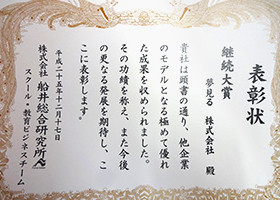 表彰状
継続大賞
夢見る 株式会社 殿
貴社は頭書の通り、他企業
のモデルとなる極めて優れ
た成果を収められました。
その功績を称え、また今後
の更なる発展を期待し、こ
こに表彰します。
平成二十五年十二月十七日
株式会社 船井総合研究所
スクール・教育ビジネスチーム